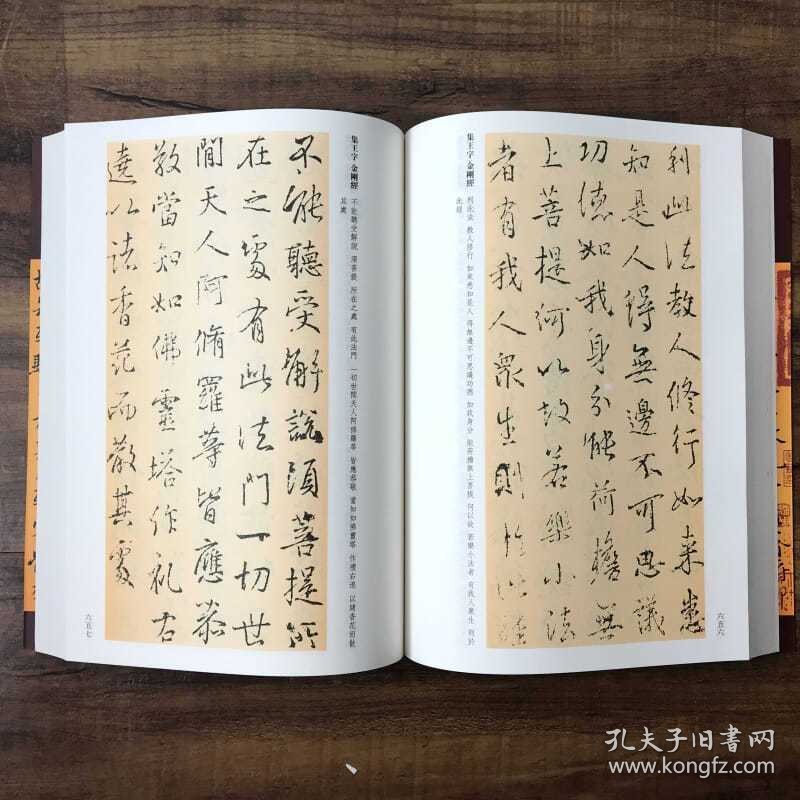 利此法教人修行如來悉
知是人得無邊不可思議
功德如我身分能荷擔無
上菩提何以故若樂小法
者有我人衆生則於此經
集王字 金剛經 利此法 教人修行 如來悉知是人 得無邊不可思議功德 如我身分 能荷擔無上菩提 何以故 若樂小法者 有我人衆生 則於
此經
六五六
集王字 金剛經 不能聽受解說 須菩提 所在之處 有此法門 一切世間天人阿脩羅等 皆應恭敬 當知如佛靈塔 作禮右遶 以諸香花而散
其處
不能聽受解說須菩提所
在之處有此法門一切世
間天人阿脩羅等皆應恭
敬當知如佛靈塔作礼右
遶以諸香花而散其處
六五七
孔夫子旧书网
www.kongfz.com